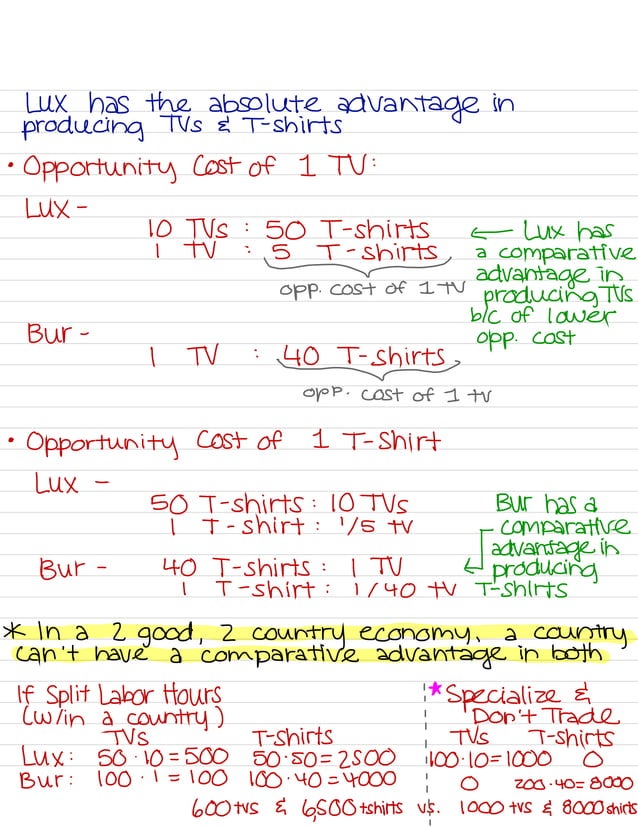 Lux has the absolute advantage in
producing TVs & T-shirts
• Opportunity Cost of 1 TV:
Lux -
10 TVs : 50 T-shirts
1 TV : 5 T-shirts
opp. cost of 1 TV
← Lux has
a comparative
advantage in
producing TVs
b/c of lower
opp. cost
Bur -
1 TV : 40 T-shirts
opp. cost of 1 tv
• Opportunity Cost of 1 T-Shirt
Lux -
50 T-shirts : 10 TVs
1 T-shirt : 1/5 tv
Bur - 40 T-shirts : 1 TV
1 T-shirt : 1/40 tv
Bur has a
comparative
advantage in
producing
T-shirts
* In a 2 good, 2 country economy, a country
can't have a comparative advantage in both
If Split Labor Hours
(w/in a country)
TVs T-shirts
Lux: 50·10=500 50·50=2500
Bur: 100·1=100 100·40=4000
★ Specialize &
Don't Trade
TVs T-shirts
100·10=1000 0
0 200·40=8000
600 tvs & 6,500 tshirts v.s. 1000 tvs & 8000 shirts